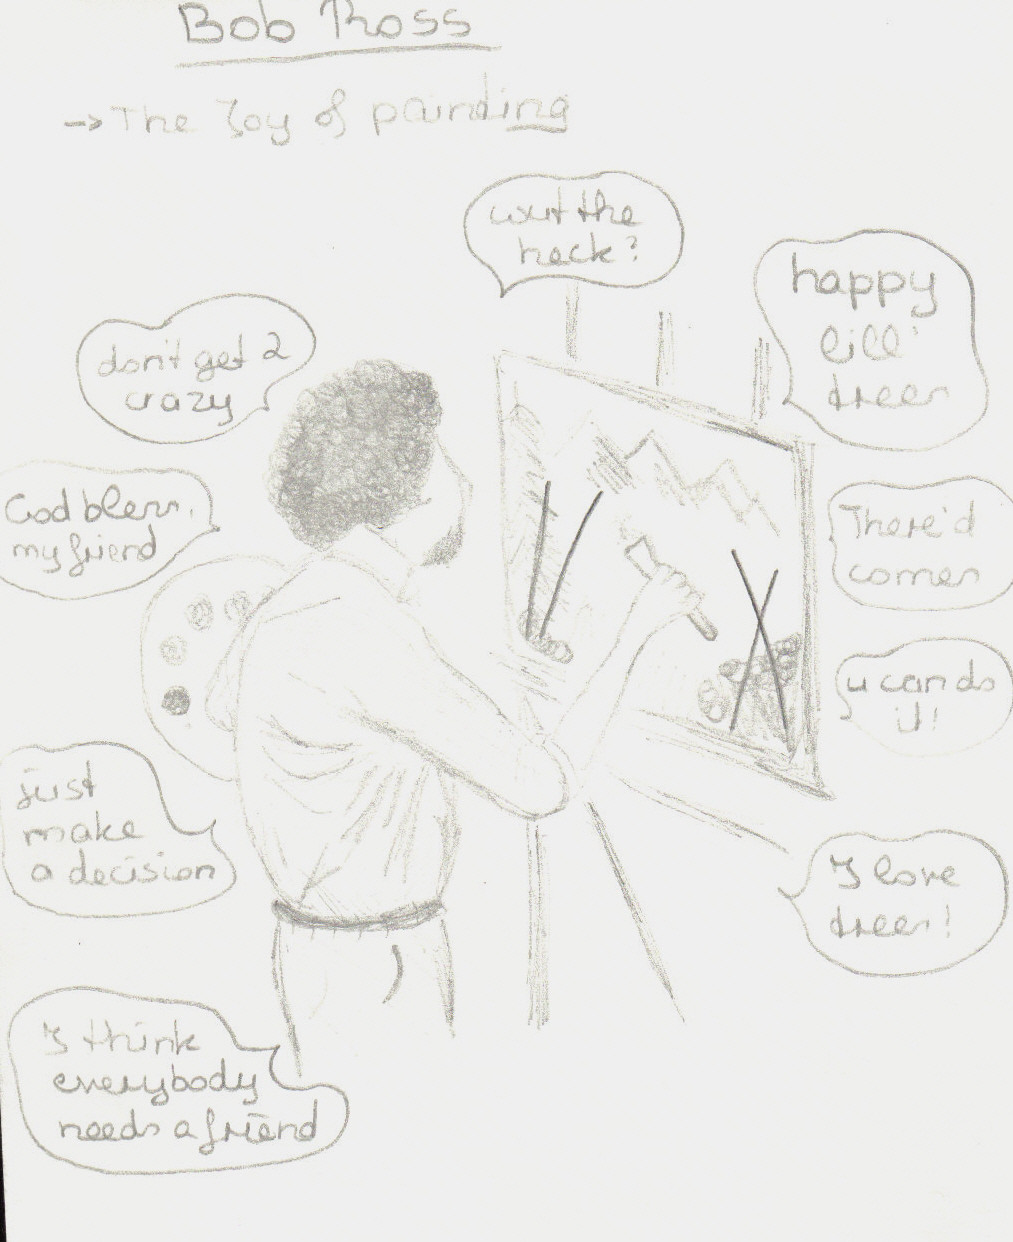 Bob Ross
-> The Joy of painting
wut the
heck?
happy
lill'
trees
don't get 2
crazy
God bless,
my friend
There'd
comes
u can do
it!
just
make
a decision
I love
trees!
I think
everybody
needs a friend